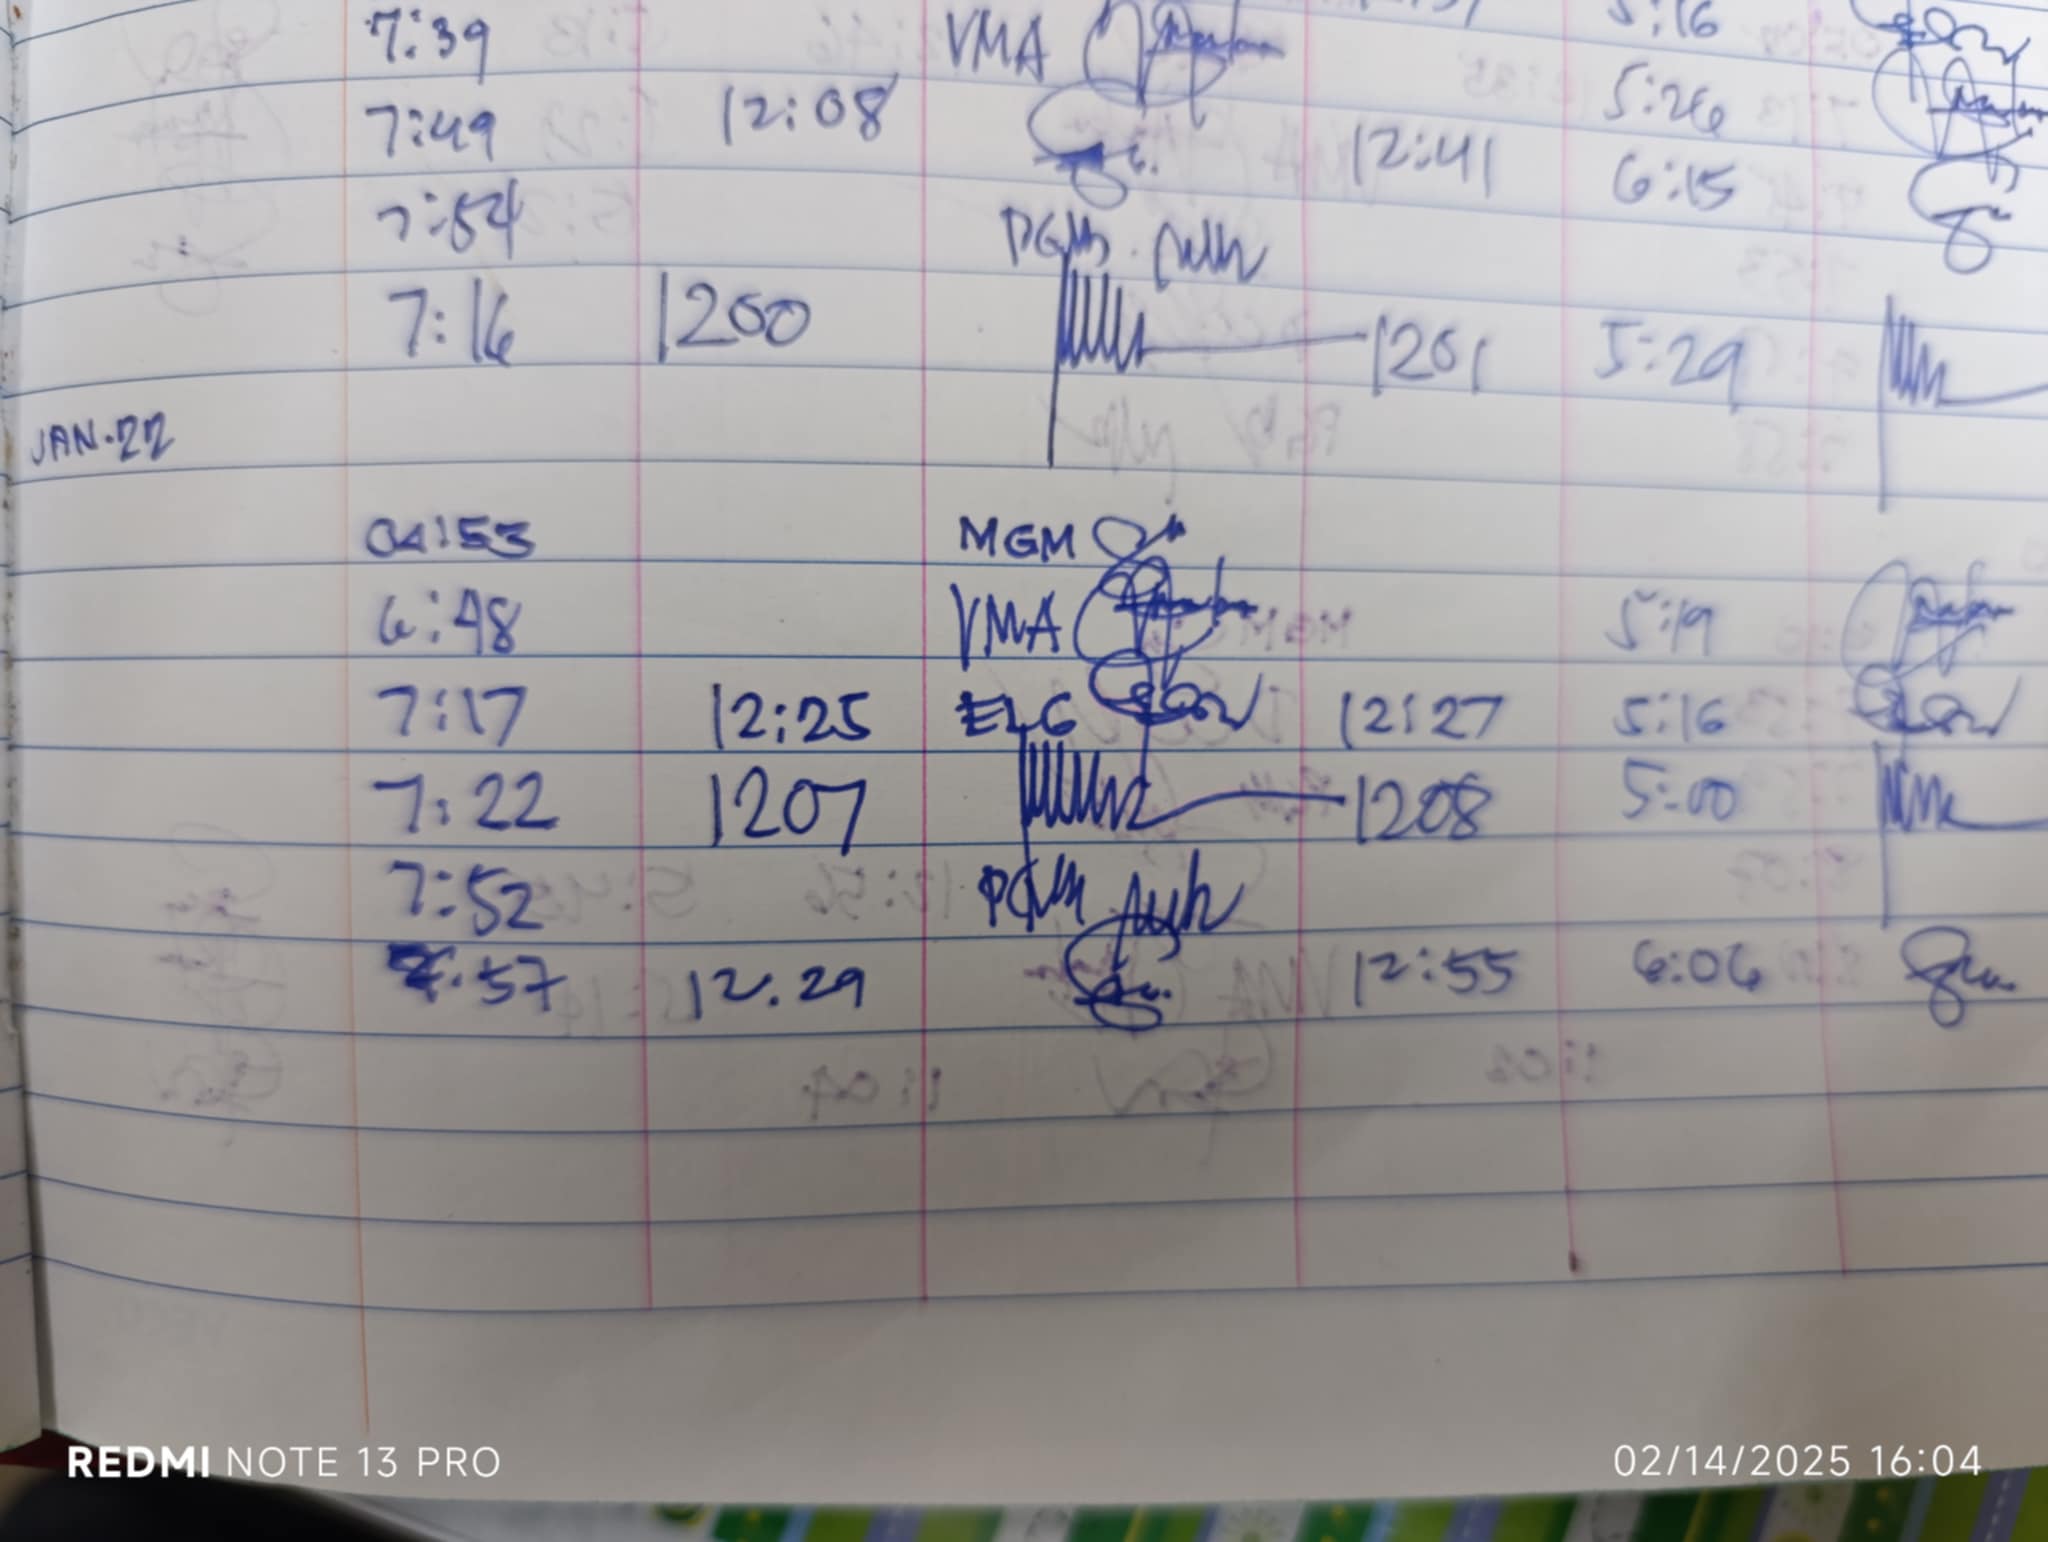 7:39 VMA 5:16
7:49 12:08 12:41 5:26
7:54 PGM 6:15
7:16 1200 1201 5:29
JAN.22
04:53 MGM
6:48 VMA 5:19
7:17 12:25 ELG 12:27 5:16
7:22 1207 1208 5:00
7:52 PGM
57 12.29 12:55 6:06
REDMI NOTE 13 PRO 02/14/2025 16:04